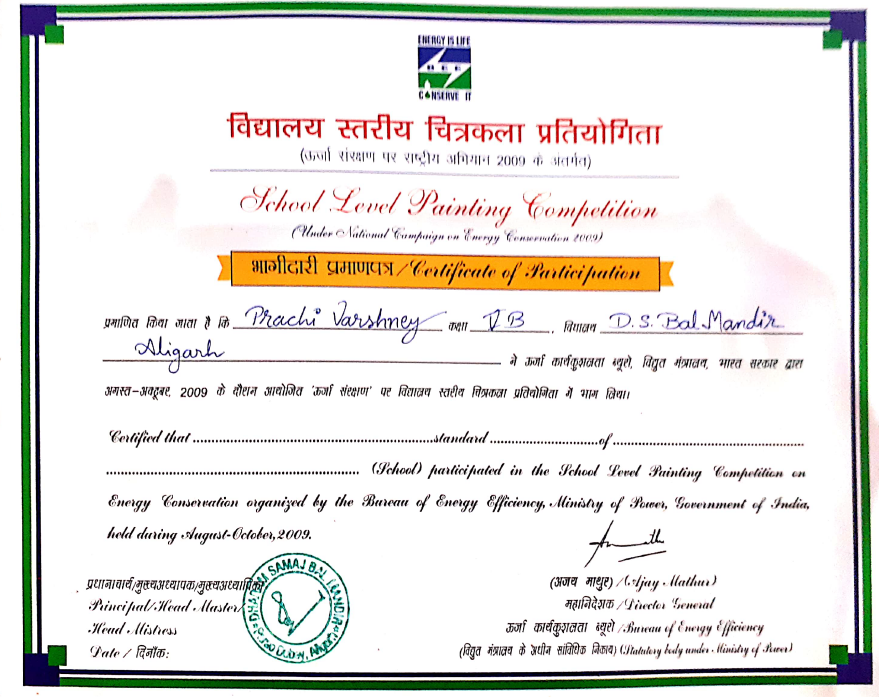 ENERGY IS LIFE
BEE
CONSERVE IT
विद्यालय स्तरीय चित्रकला प्रतियोगिता
(ऊर्जा संरक्षण पर राष्ट्रीय अभियान 2009 के अंतर्गत)
School Level Painting Competition
(Under National Campaign on Energy Conservation 2009)
भागीदारी प्रमाणपत्र/Certificate of Participation
प्रमाणित किया जाता है कि Prachi Varshney कक्षा V B, विद्यालय D.S. Bal Mandir
Aligarh ने ऊर्जा कार्यकुशलता ब्यूरो, विद्युत मंत्रालय, भारत सरकार द्वारा
अगस्त-अक्टूबर, 2009 के दौरान आयोजित 'ऊर्जा संरक्षण' पर विद्यालय स्तरीय चित्रकला प्रतियोगिता में भाग लिया।
Certified that ........ standard ........ of ........
........ (School) participated in the School Level Painting Competition on
Energy Conservation organized by the Bureau of Energy Efficiency, Ministry of Power, Government of India,
held during August-October, 2009.
प्रधानाचार्य/मुख्यअध्यापक/मुख्यअध्यापिका
Principal/Head Master/
Head Mistress
Date / दिनाँक:
DHARAM SAMAJ BAL MANDIR
Aligarh
(अजय माथुर) /(Ajay Mathur)
महानिदेशक /Director General
ऊर्जा कार्यकुशलता ब्यूरो /Bureau of Energy Efficiency
(विद्युत मंत्रालय के अधीन सांविधिक निकाय) (Statutory body under Ministry of Power)